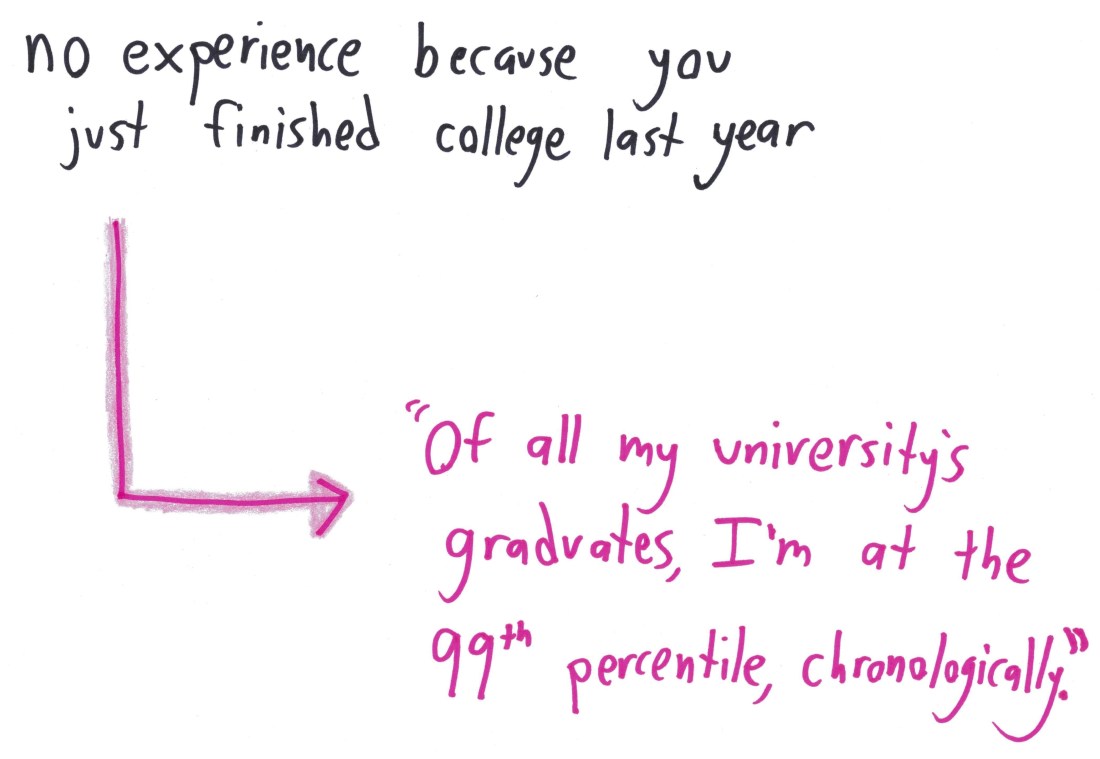 no experience because you
just finished college last year
"Of all my university's
graduates, I'm at the
99th percentile, chronologically."